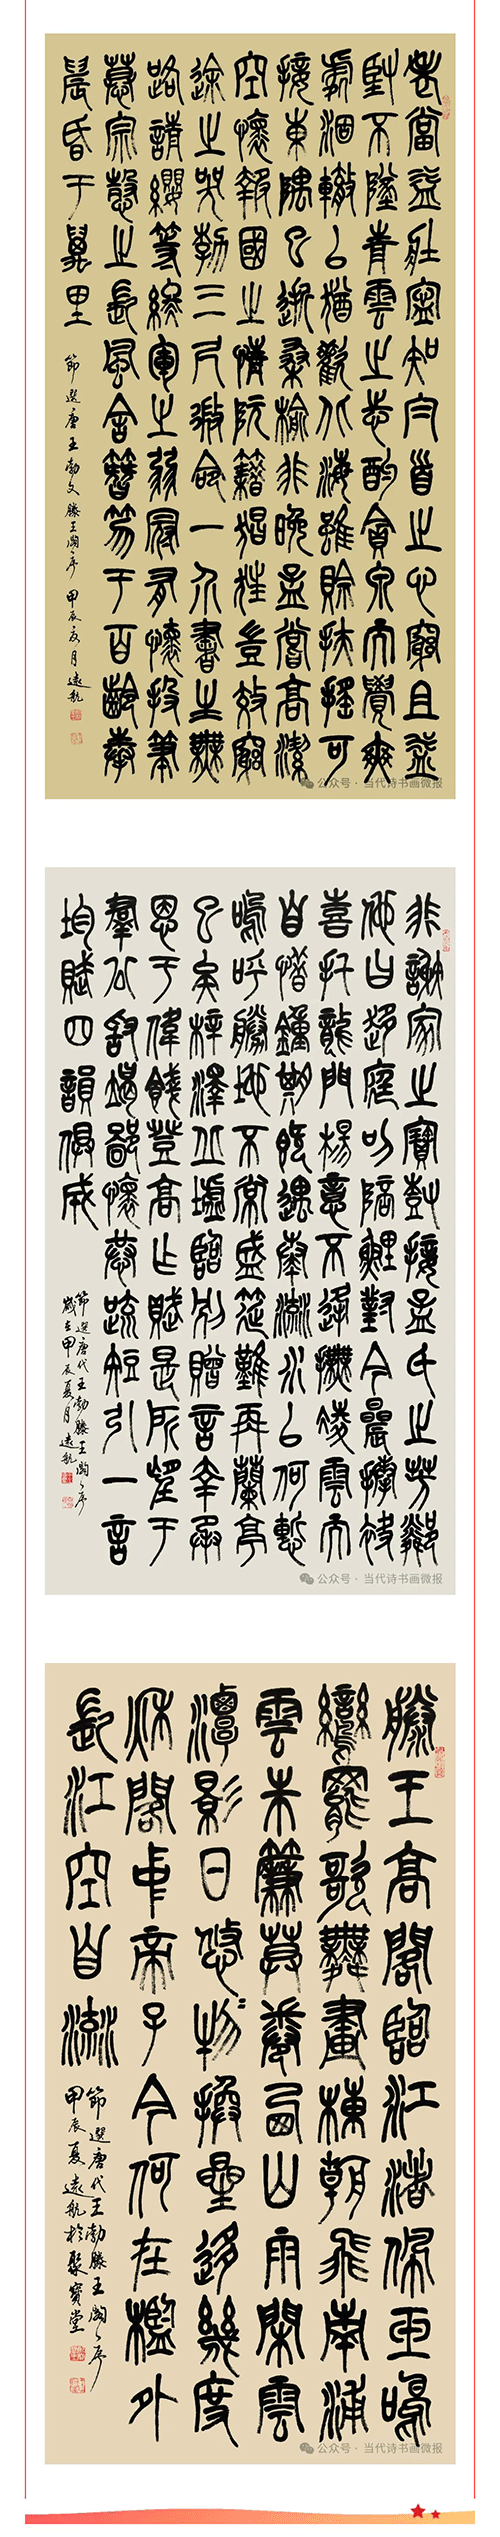 老當益壯寧知白首之心窮且益
堅不墜青雲之志酌貪泉而覺爽
處涸轍以猶歡北海雖賒扶搖可
接東隅已逝桑榆非晚孟嘗高潔
空懷報國之情阮籍猖狂豈效窮
途之哭勃三尺微命一介書生無
路請纓等終軍之弱冠有懷投筆
慕宗愨之長風舍簪笏于百齡奉
晨昏于萬里
節選唐王勃文滕王閣序 甲辰夏月 遠航
公众号 · 当代诗书画微报
非謝家之寶樹接孟氏之芳鄰
他日趨庭叨陪鯉對今晨捧袂
喜托龍門楊意不逢撫凌雲而
自惜鍾期既遇奏流水以何慙
嗚呼勝地不常盛筵難再蘭亭
已矣梓澤丘墟臨別贈言幸承
恩于偉餞登高作賦是所望于
羣公敢竭鄙懷恭疏短引一言
均賦四韻俱成
節選唐代王勃滕王閣序
歲在甲辰夏月 遠航
公众号 · 当代诗书画微报
滕王高閣臨江渚佩玉鳴
鸞罷歌舞畫棟朝飛南浦
雲朱簾暮捲西山雨閒雲
潭影日悠〻物換星移幾度
秋閣中帝子今何在檻外
長江空自流
節選唐代王勃滕王閣序
甲辰夏 遠航於聚寶堂
公众号 · 当代诗书画微报